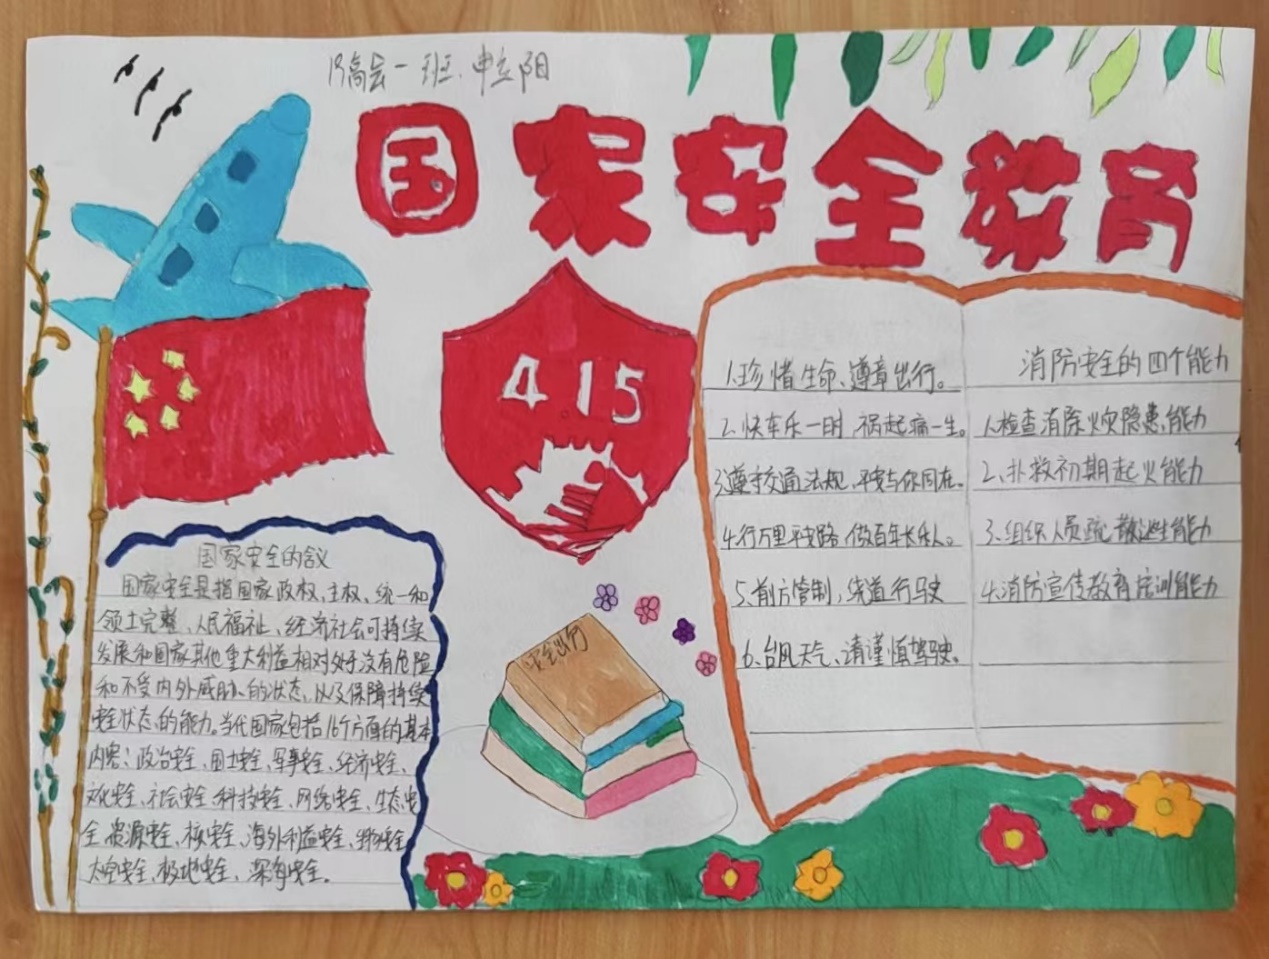 18高会一班.申立阳
国家安全教育
415
国家安全的含义
国家安全是指国家政权、主权、统一和
领土完整、人民福祉、经济社会可持续
发展和国家其他重大利益相对处于没有危险
和不受内外威胁的状态,以及保障持续
安全状态的能力。当代国家包括16个方面的基本
内容:政治安全、国土安全、军事安全、经济安全、
文化安全、社会安全、科技安全、网络安全、生态安
全、资源安全、核安全、海外利益安全、生物安全、
太空安全、极地安全、深海安全。
安全出行
1.珍惜生命、遵章出行。
2.快车乐一时,祸起痛一生。
3.遵守交通法规、平安与你同在。
4.行万里平安路,做百年长乐人。
5.前方管制,绕道行驶
6.台风天气、请谨慎驾驶。
消防安全的四个能力
1.检查消除火灾隐患能力
2、扑救初期起火能力
3、组织人员疏散逃生能力
4.消防宣传教育培训能力